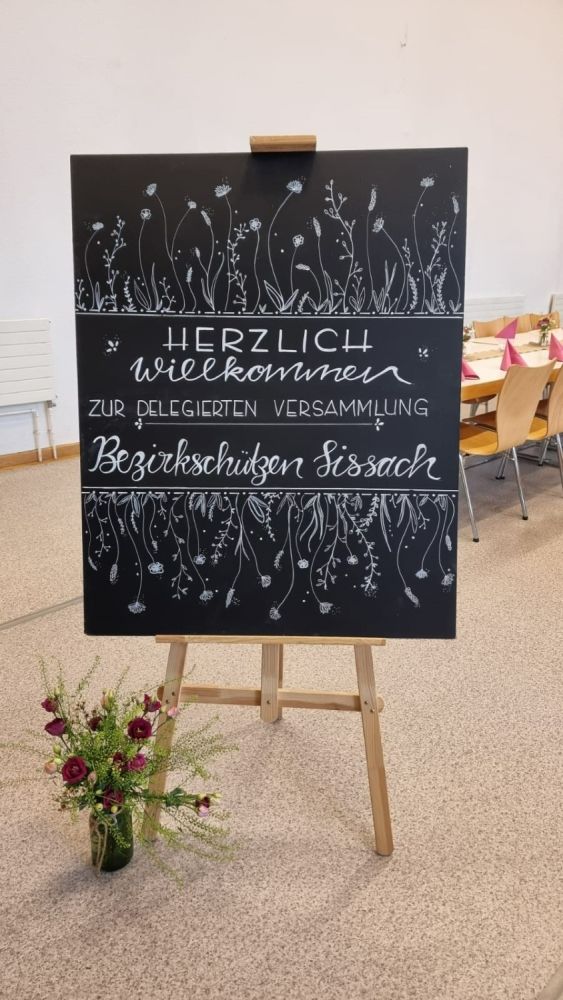 HERZLICH
willkommen
ZUR DELEGIERTEN VERSAMMLUNG
Bezirkschützen Sissach